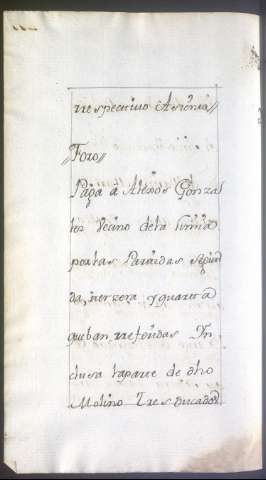 rrespectivo Asiento//
//Foro//
Paga a Alexos Gonzal
lez Vecino dela
por las Partidas segun
da, terzera, y quarta
que ban rrefendas In
clusa la parte de dho
Molino Tres Ducados